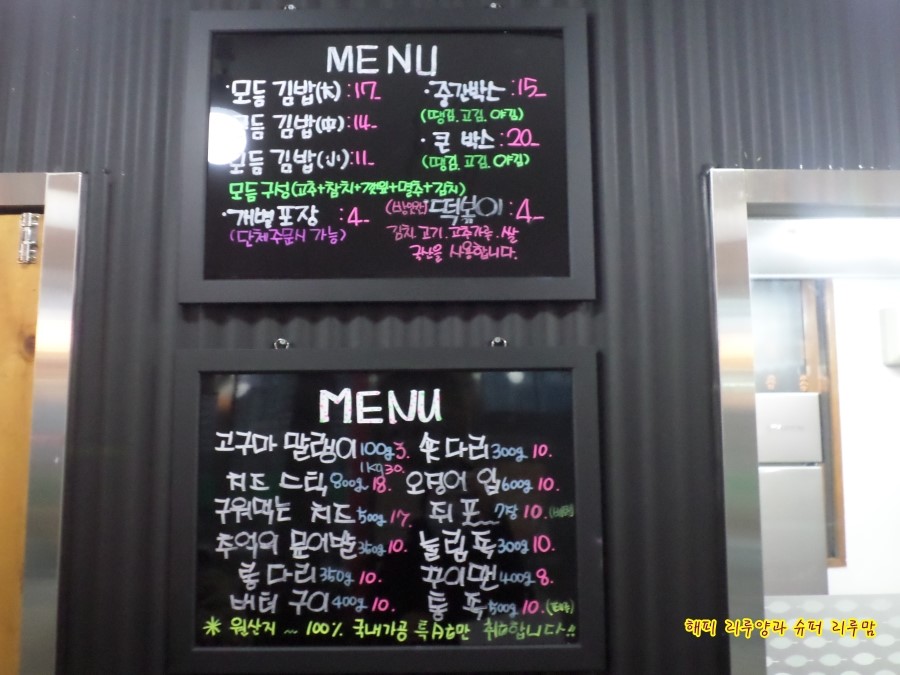 MENU
·모듬 김밥(大):17_
·모듬 김밥(中):14_
모듬 김밥(小):11_
모듬 구성(고추+참치+깻잎+멸추+김치)
·개별포장 :4_
(단체 주문시 가능)
·중간박스:15_
(땡김.고김.야김)
·큰 박스:20_
(땡김.고김.야김)
떡볶이:4_
김치.고기.고추가루.쌀
국산을 사용합니다.
MENU
고구마 말랭이 100g 3.
1kg 30.
치즈 스틱 800g 18.
구워먹는 치즈 500g 17.
추억의 문어발 350g 10.
롱다리 350g 10.
버터 구이 400g 10.
숏다리 300g 10.
오징어 입 600g 10.
쥐 포 7장 10.
눌림 족 300g 10.
꾸이맨 400g 8.
통 족 500g 10.
* 원산지 ~ 100% 국내가공 특A급만 취급합니다!!
해피 리루양과 슈퍼 리루맘